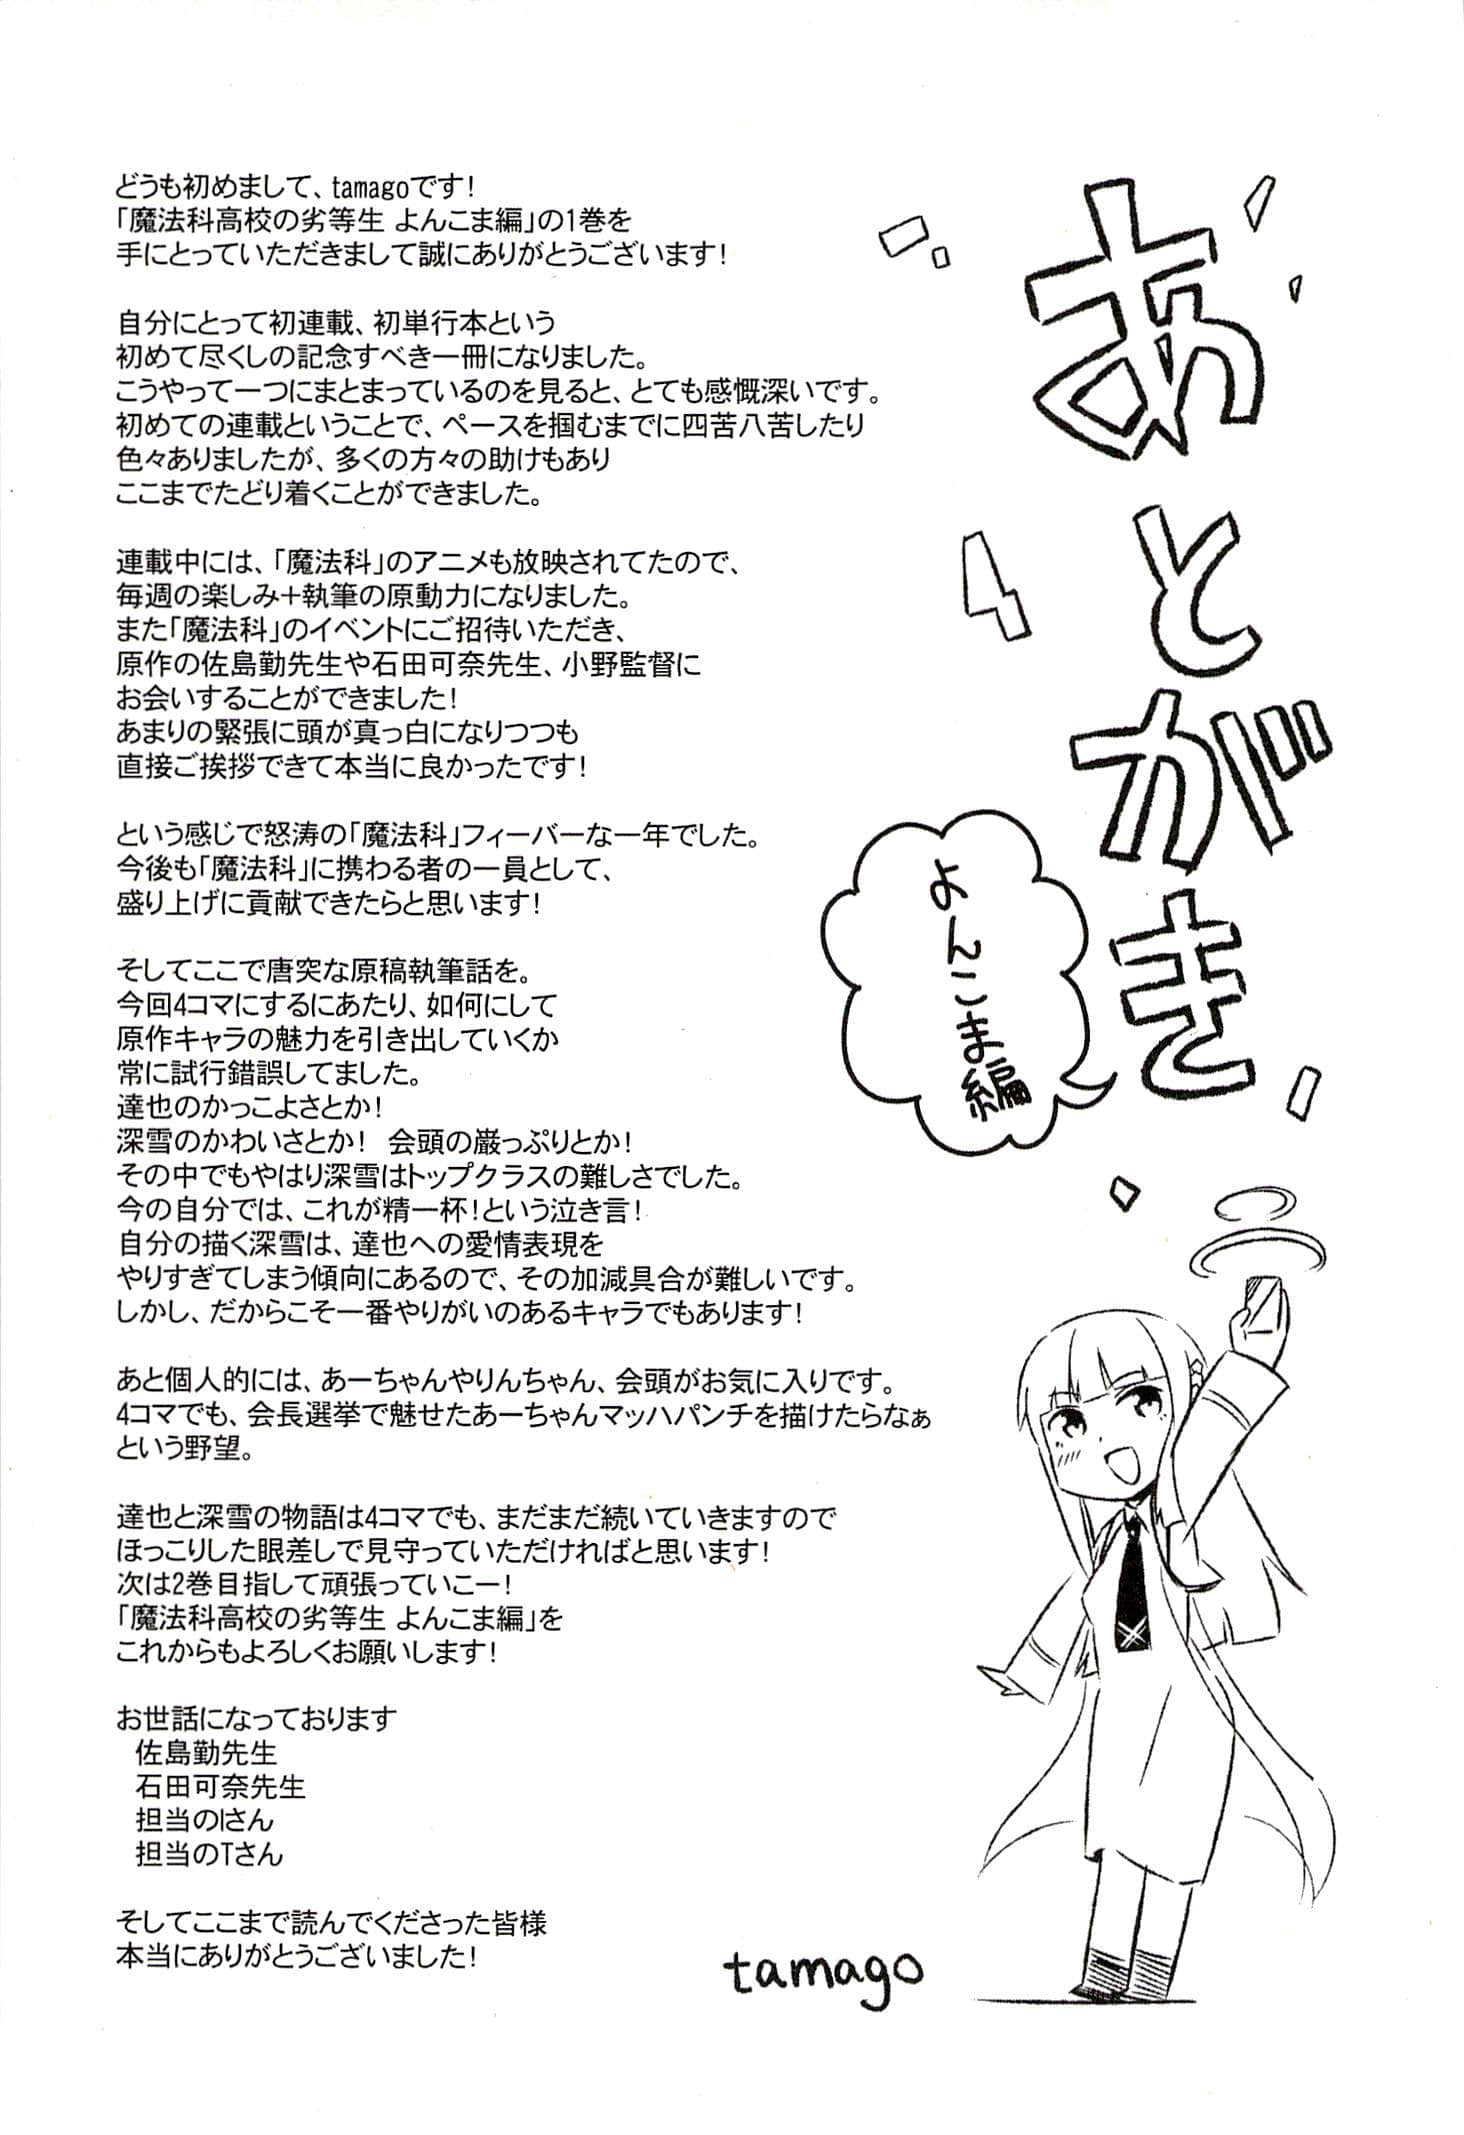 あとがき
よんこま編
どうも初めまして、tamagoです！
「魔法科高校の劣等生 よんこま編」の1巻を
手にとっていただきまして誠にありがとうございます！
自分にとって初連載、初単行本という
初めて尽くしの記念すべき一冊になりました。
こうやって一つにまとまっているのを見ると、とても感慨深いです。
初めての連載ということで、ペースを掴むまでに四苦八苦したり
色々ありましたが、多くの方々の助けもあり
ここまでたどり着くことができました。
連載中には、「魔法科」のアニメも放映されてたので、
毎週の楽しみ＋執筆の原動力になりました。
また「魔法科」のイベントにご招待いただき、
原作の佐島勤先生や石田可奈先生、小野監督に
お会いすることができました！
あまりの緊張に頭が真っ白になりつつも
直接ご挨拶できて本当に良かったです！
という感じで怒涛の「魔法科」フィーバーな一年でした。
今後も「魔法科」に携わる者の一員として、
盛り上げに貢献できたらと思います！
そしてここで唐突な原稿執筆話を。
今回4コマにするにあたり、如何にして
原作キャラの魅力を引き出していくか
常に試行錯誤してました。
達也のかっこよさとか！
深雪のかわいさとか！ 会頭の巌っぷりとか！
その中でもやはり深雪はトップクラスの難しさでした。
今の自分では、これが精一杯！という泣き言！
自分の描く深雪は、達也への愛情表現を
やりすぎてしまう傾向にあるので、その加減具合が難しいです。
しかし、だからこそ一番やりがいのあるキャラでもあります！
あと個人的には、あーちゃんやりんちゃん、会頭がお気に入りです。
4コマでも、会長選挙で魅せたあーちゃんマッハパンチを描けたらなぁ
という野望。
達也と深雪の物語は4コマでも、まだまだ続いていきますので
ほっこりした眼差しで見守っていただければと思います！
次は2巻目指して頑張っていこー！
「魔法科高校の劣等生 よんこま編」を
これからもよろしくお願いします！
お世話になっております
佐島勤先生
石田可奈先生
担当のIさん
担当のTさん
そしてここまで読んでくださった皆様
本当にありがとうございました！
tamago